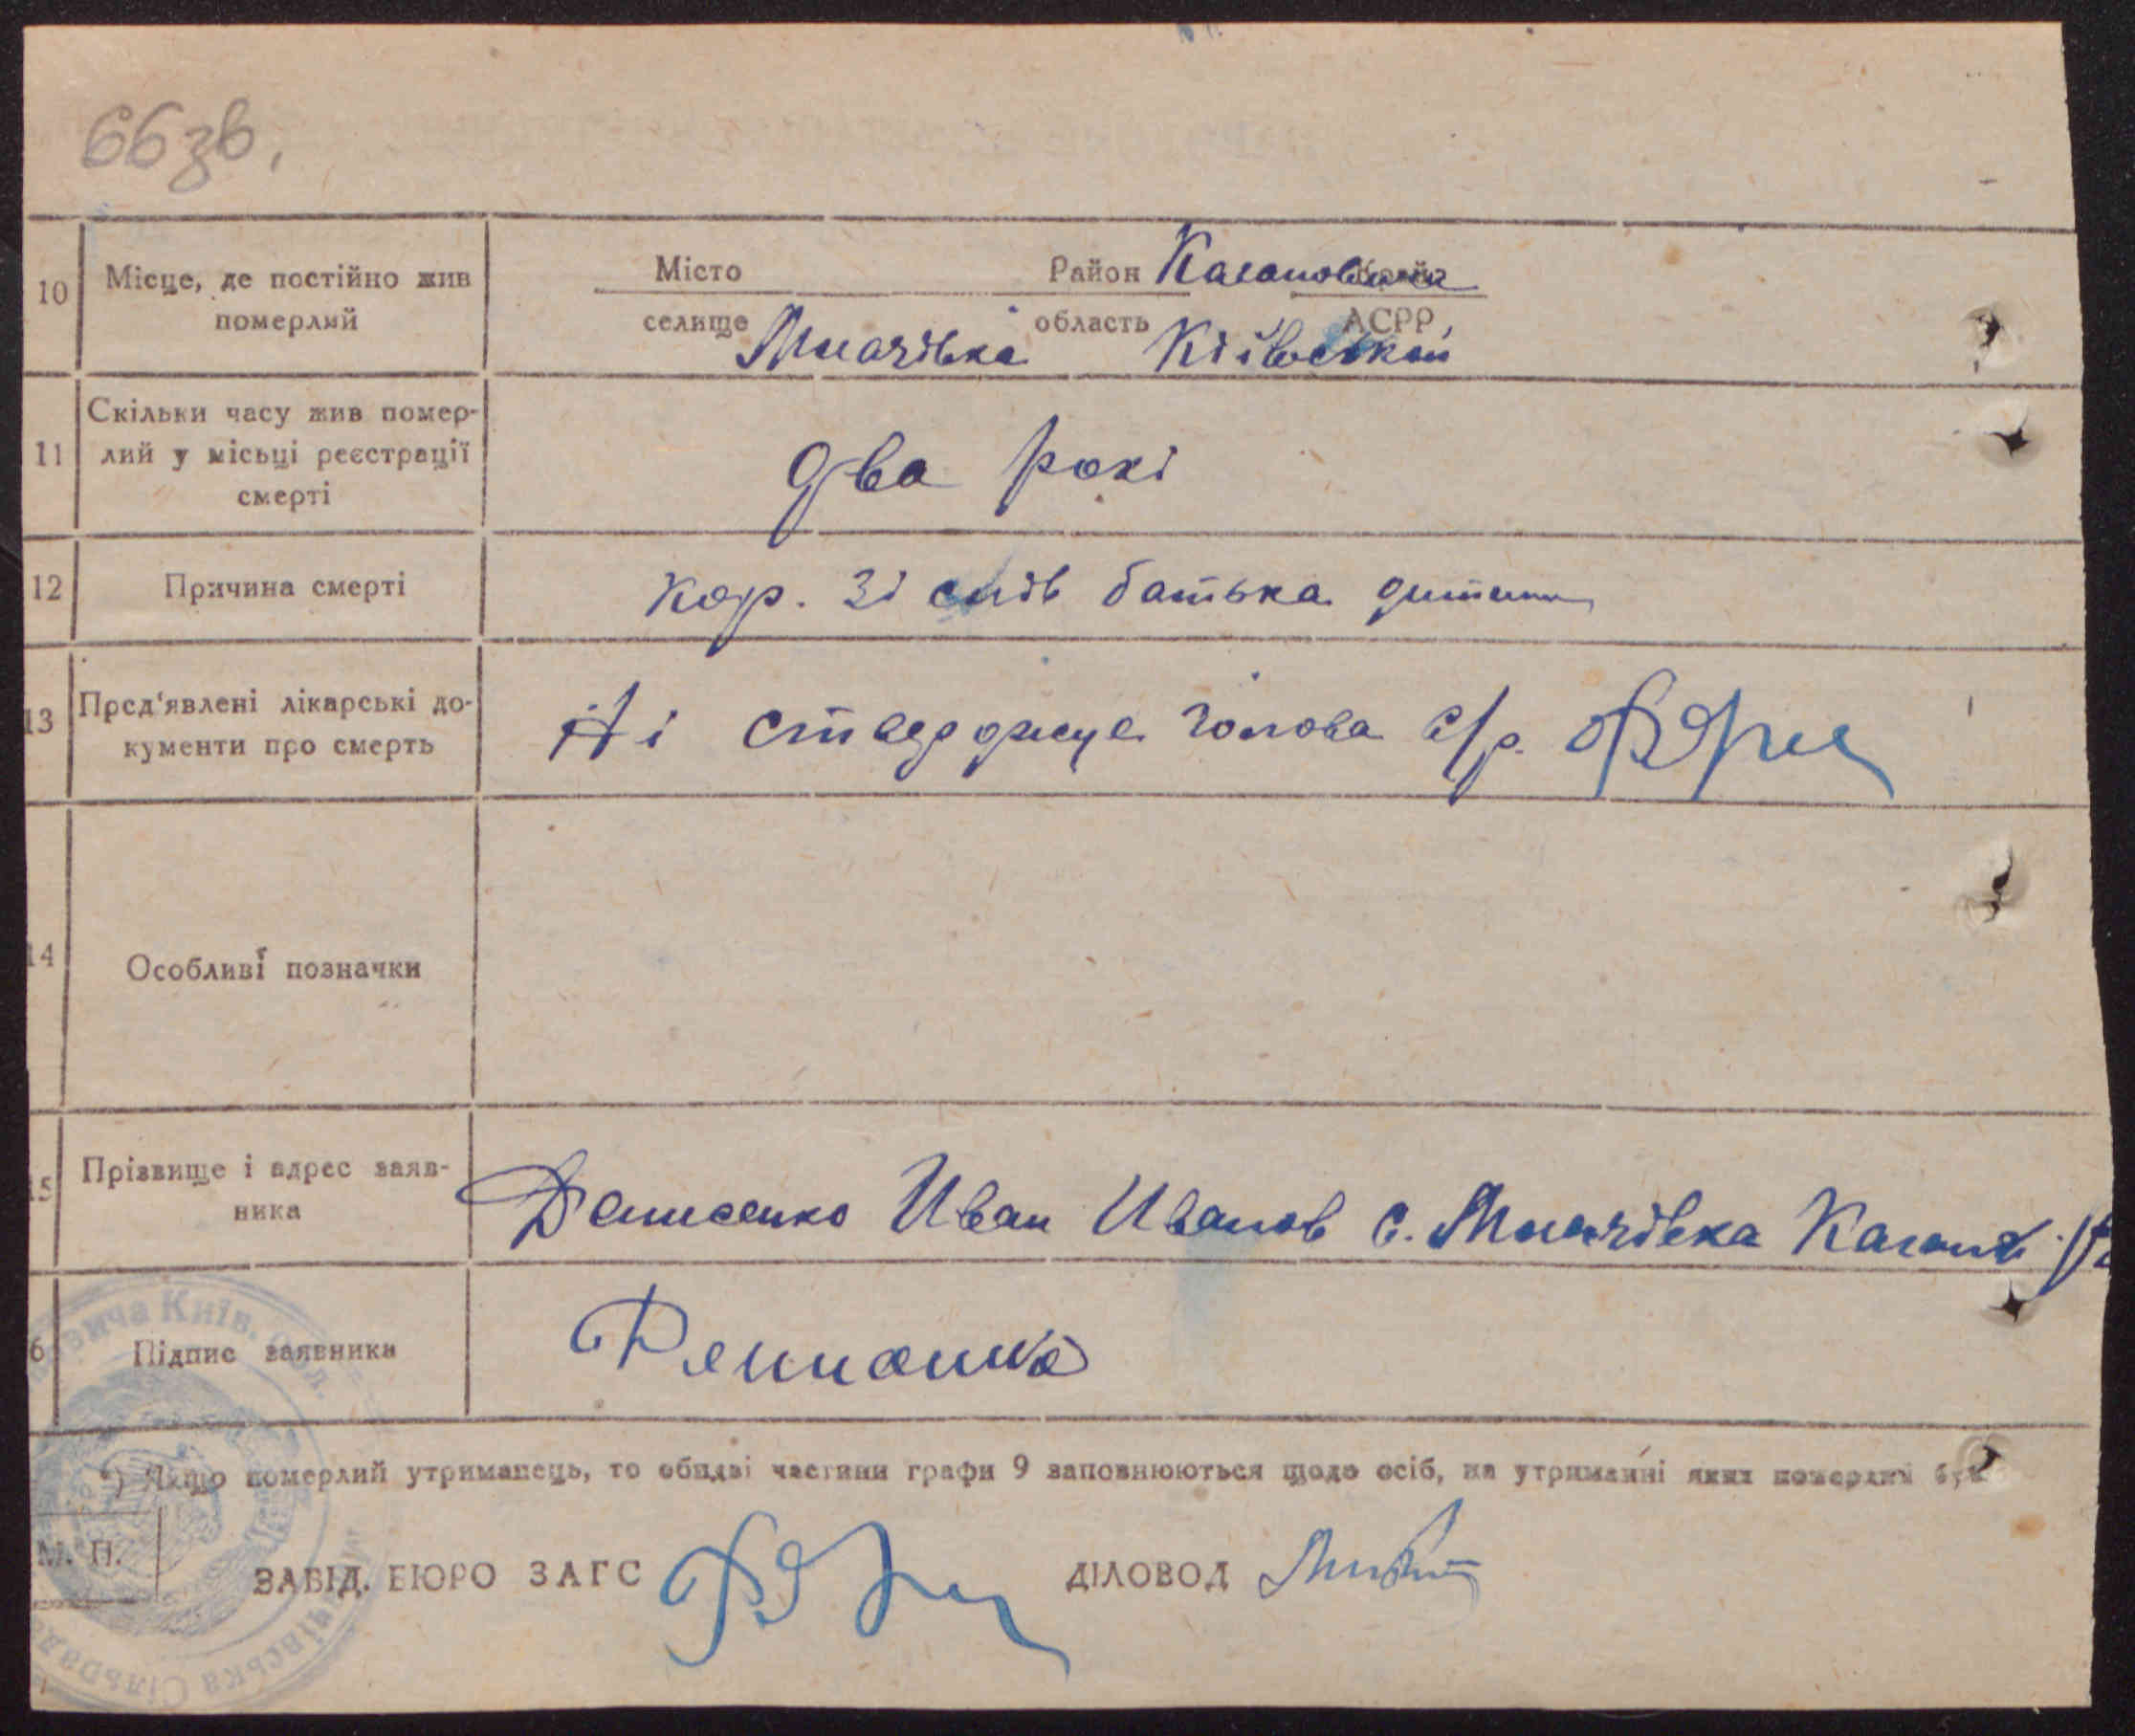 66 зв.
10 Місце, де постійно жив померлий
Місто Район Кагановича
селище Мигачівка область Київської АСРР,
11 Скільки часу жив помер-
лий у місьці реєстрації
смерті
два рокі
12 Причина смерті кор. зі слів батька дитини
13 Пред'явлені лікарські до-
кументи про смерть
Ні стверджує голова с/р.
14 Особливі позначки
15 Прізвище і адрес заяв-
ника
Денисенко Иван Иванов с.
16 Підпис заявника
*) Якщо померлий утриманець, то обидві частини графи 9 заповнюються щодо осіб, на утриманні яких померлий був
М. П.
ЗАВІД. БЮРО ЗАГС ДІЛОВОД
овича Київ. обл.
Сільрада